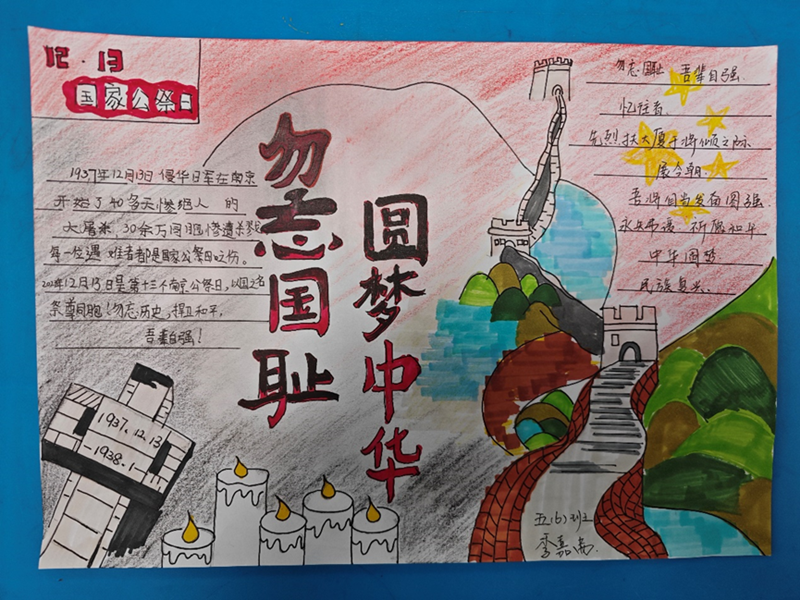 12·13
国家公祭日
1937年12月13日侵华日军在南京
开始了40多天惨绝人 的
大屠杀 30余万同胞惨遭杀
每一位遇 难者都是国家公祭日之伤。
12月13日是第十三个南京公祭日,以国之名
祭奠同胞!勿忘历史,捍卫和平,
吾辈自强!
勿志国耻
圆梦中华
勿志国耻 吾辈自强
忆往者,
先烈扶大厦于将倾之际
展今朝
吾将自当发奋图强
祈愿和平
中华圆梦
民族复兴.
1937.12.13
1938.1
五(6)班
李嘉